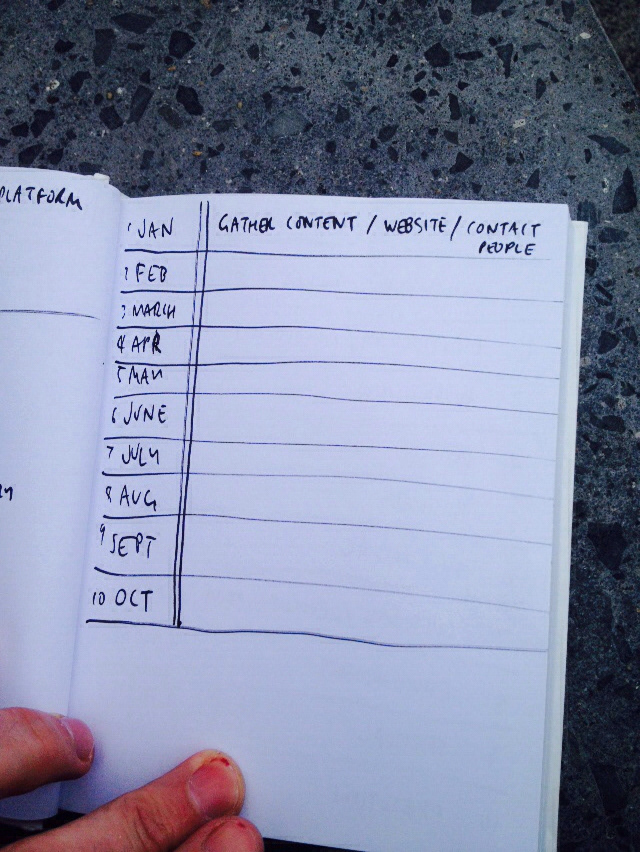 PLATFORM
1 JAN GATHER CONTENT / WEBSITE / CONTACT
PEOPLE
2 FEB
3 MARCH
4 APR
5 MAY
6 JUNE
7 JULY
8 AUG
9 SEPT
10 OCT